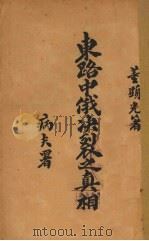 董顯光著
東路中俄決裂之真相
病夫署